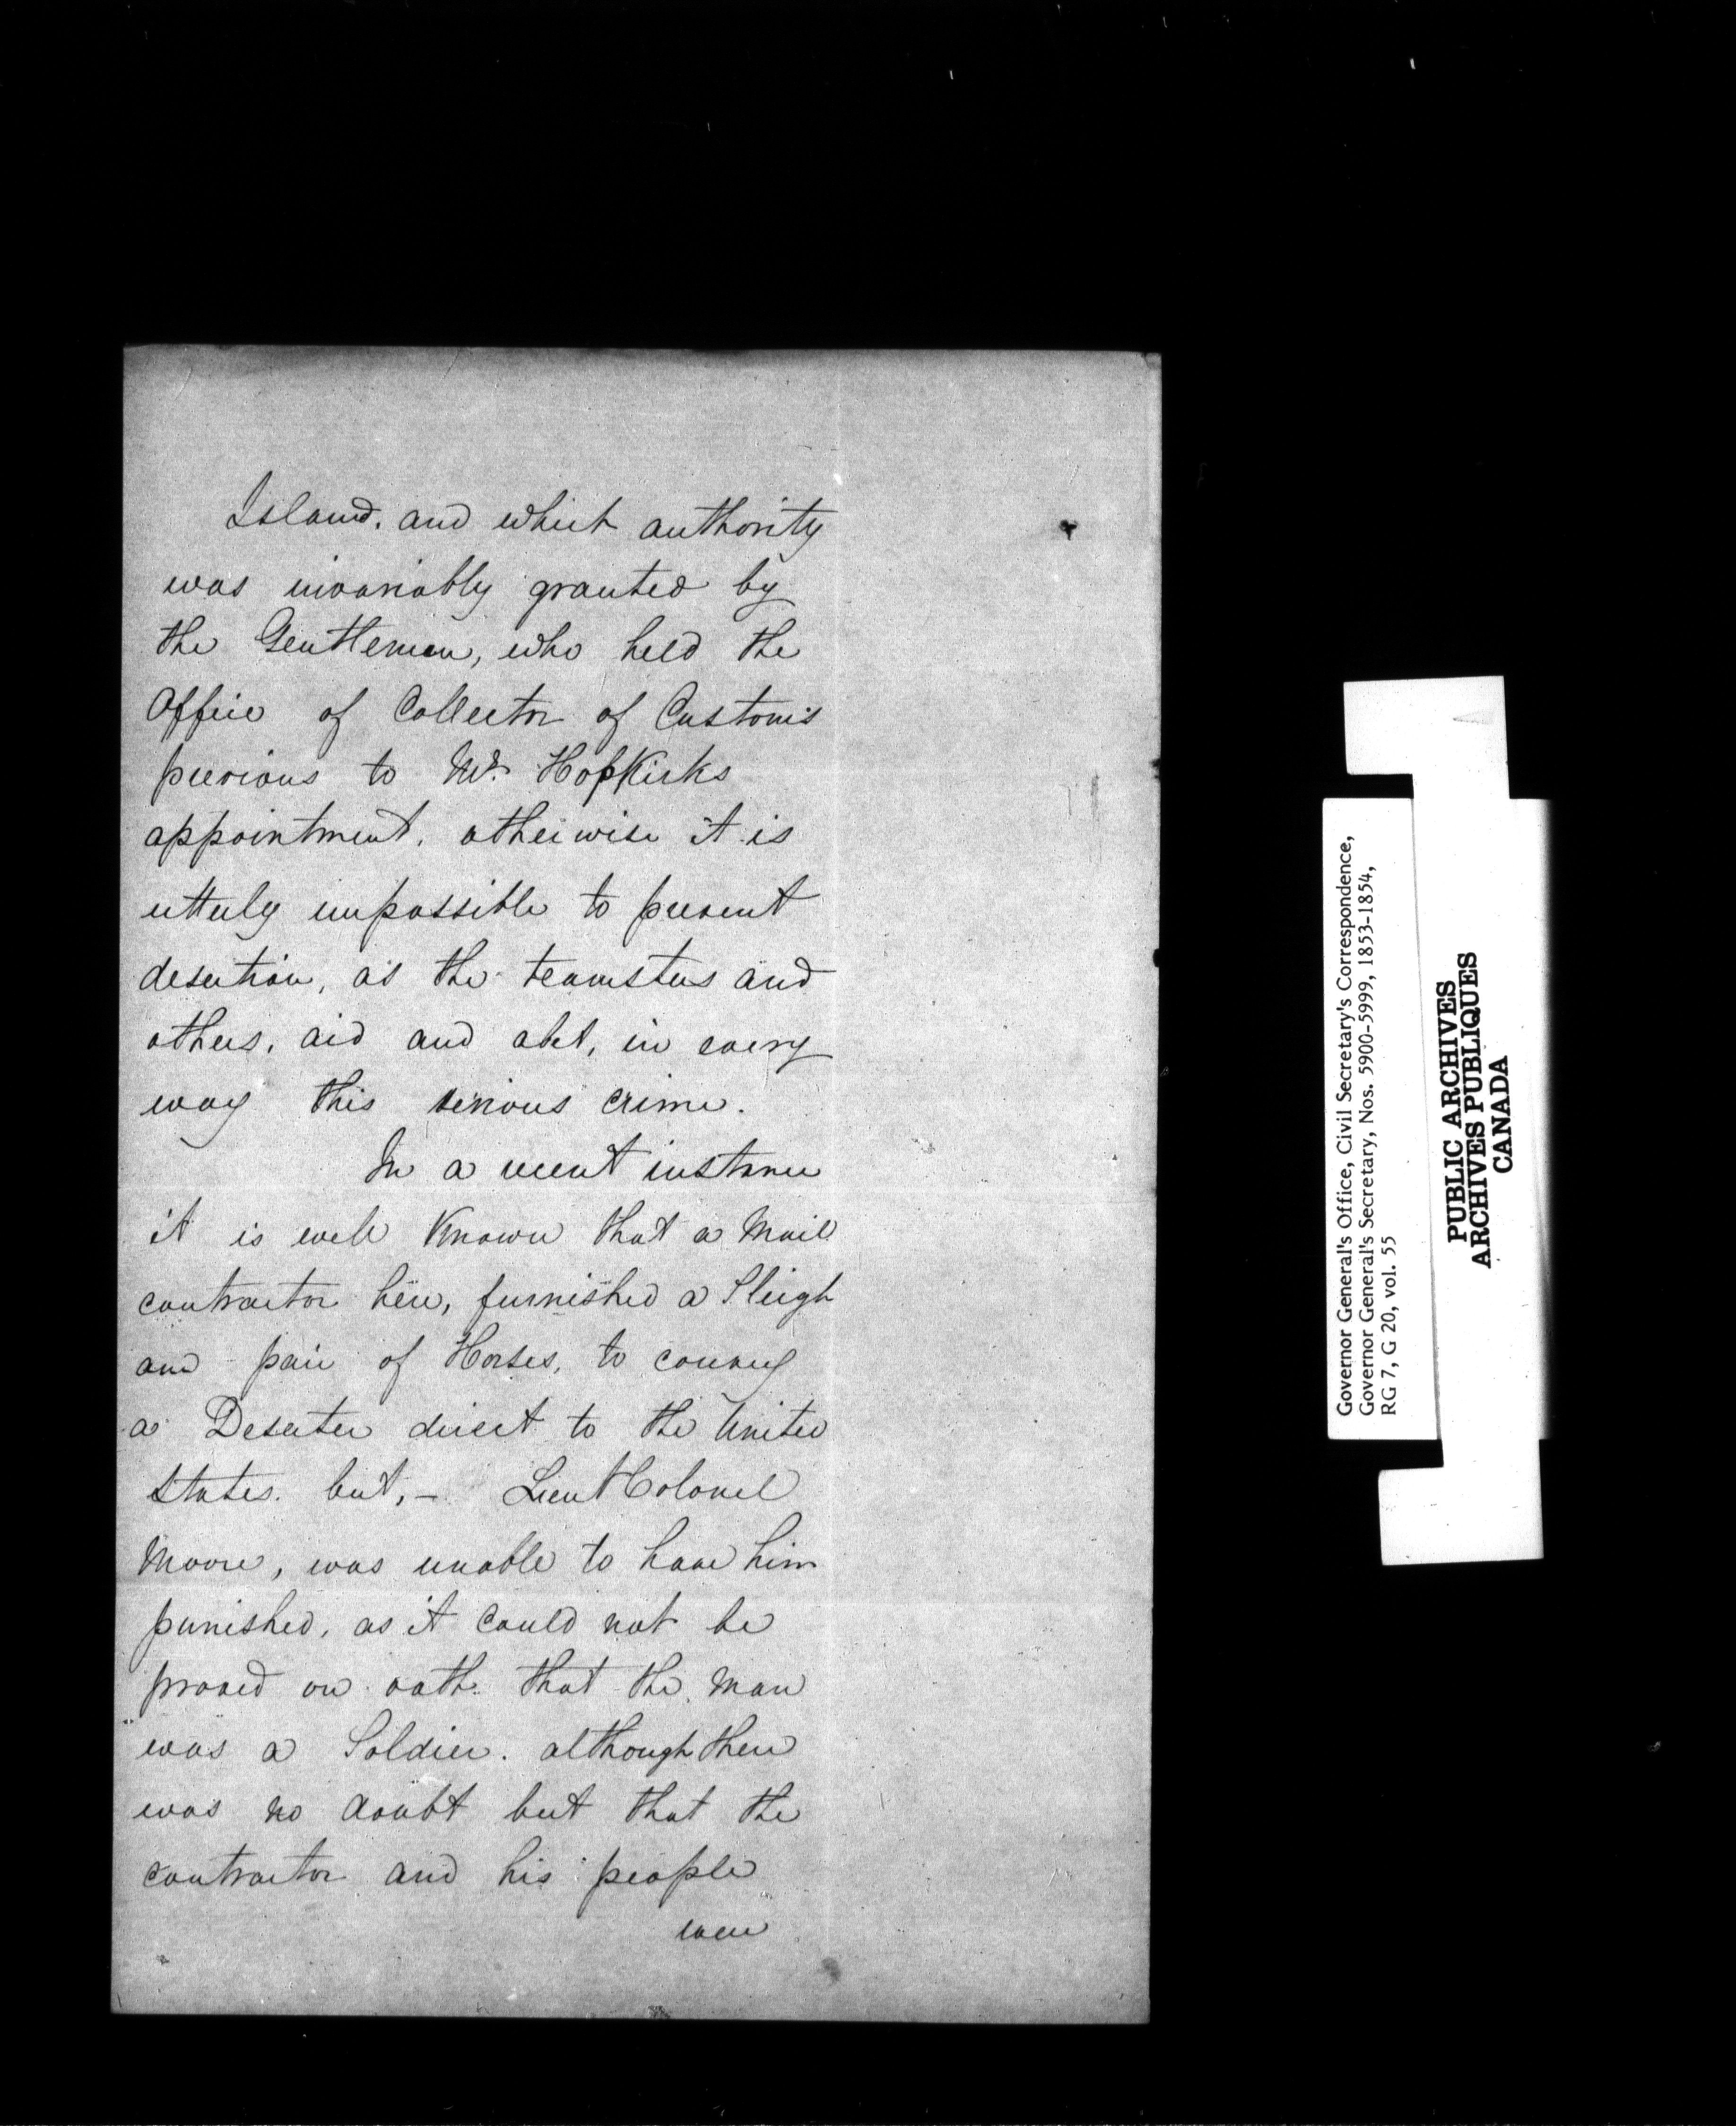 Island. and which authority
was invariably granted by
the Gentlemen, who held the
Office of Collector of Customs
previous to Mr. Hopkirks
appointment, otherwise it is
utterly impossible to prevent
desertion, as the teamsters and
others, aid and abet, in every
way this serious crime.
In a recent instance
it is well known that a Mail
contractor here, furnished a Sleigh
and pair of Horses, to convey
a Deserter direct to the United
States. but, - Lieut Colonel
Moore, was unable to have him
punished, as it could not be
proved on oath that the man
was a Soldier. although there
was no doubt but that the
contractor and his people
were
Governor General's Office, Civil Secretary's Correspondence,
Governor General's Secretary, Nos. 5900-5999, 1853-1854,
RG 7, G 20, vol. 55
PUBLIC ARCHIVES
ARCHIVES PUBLIQUES
CANADA